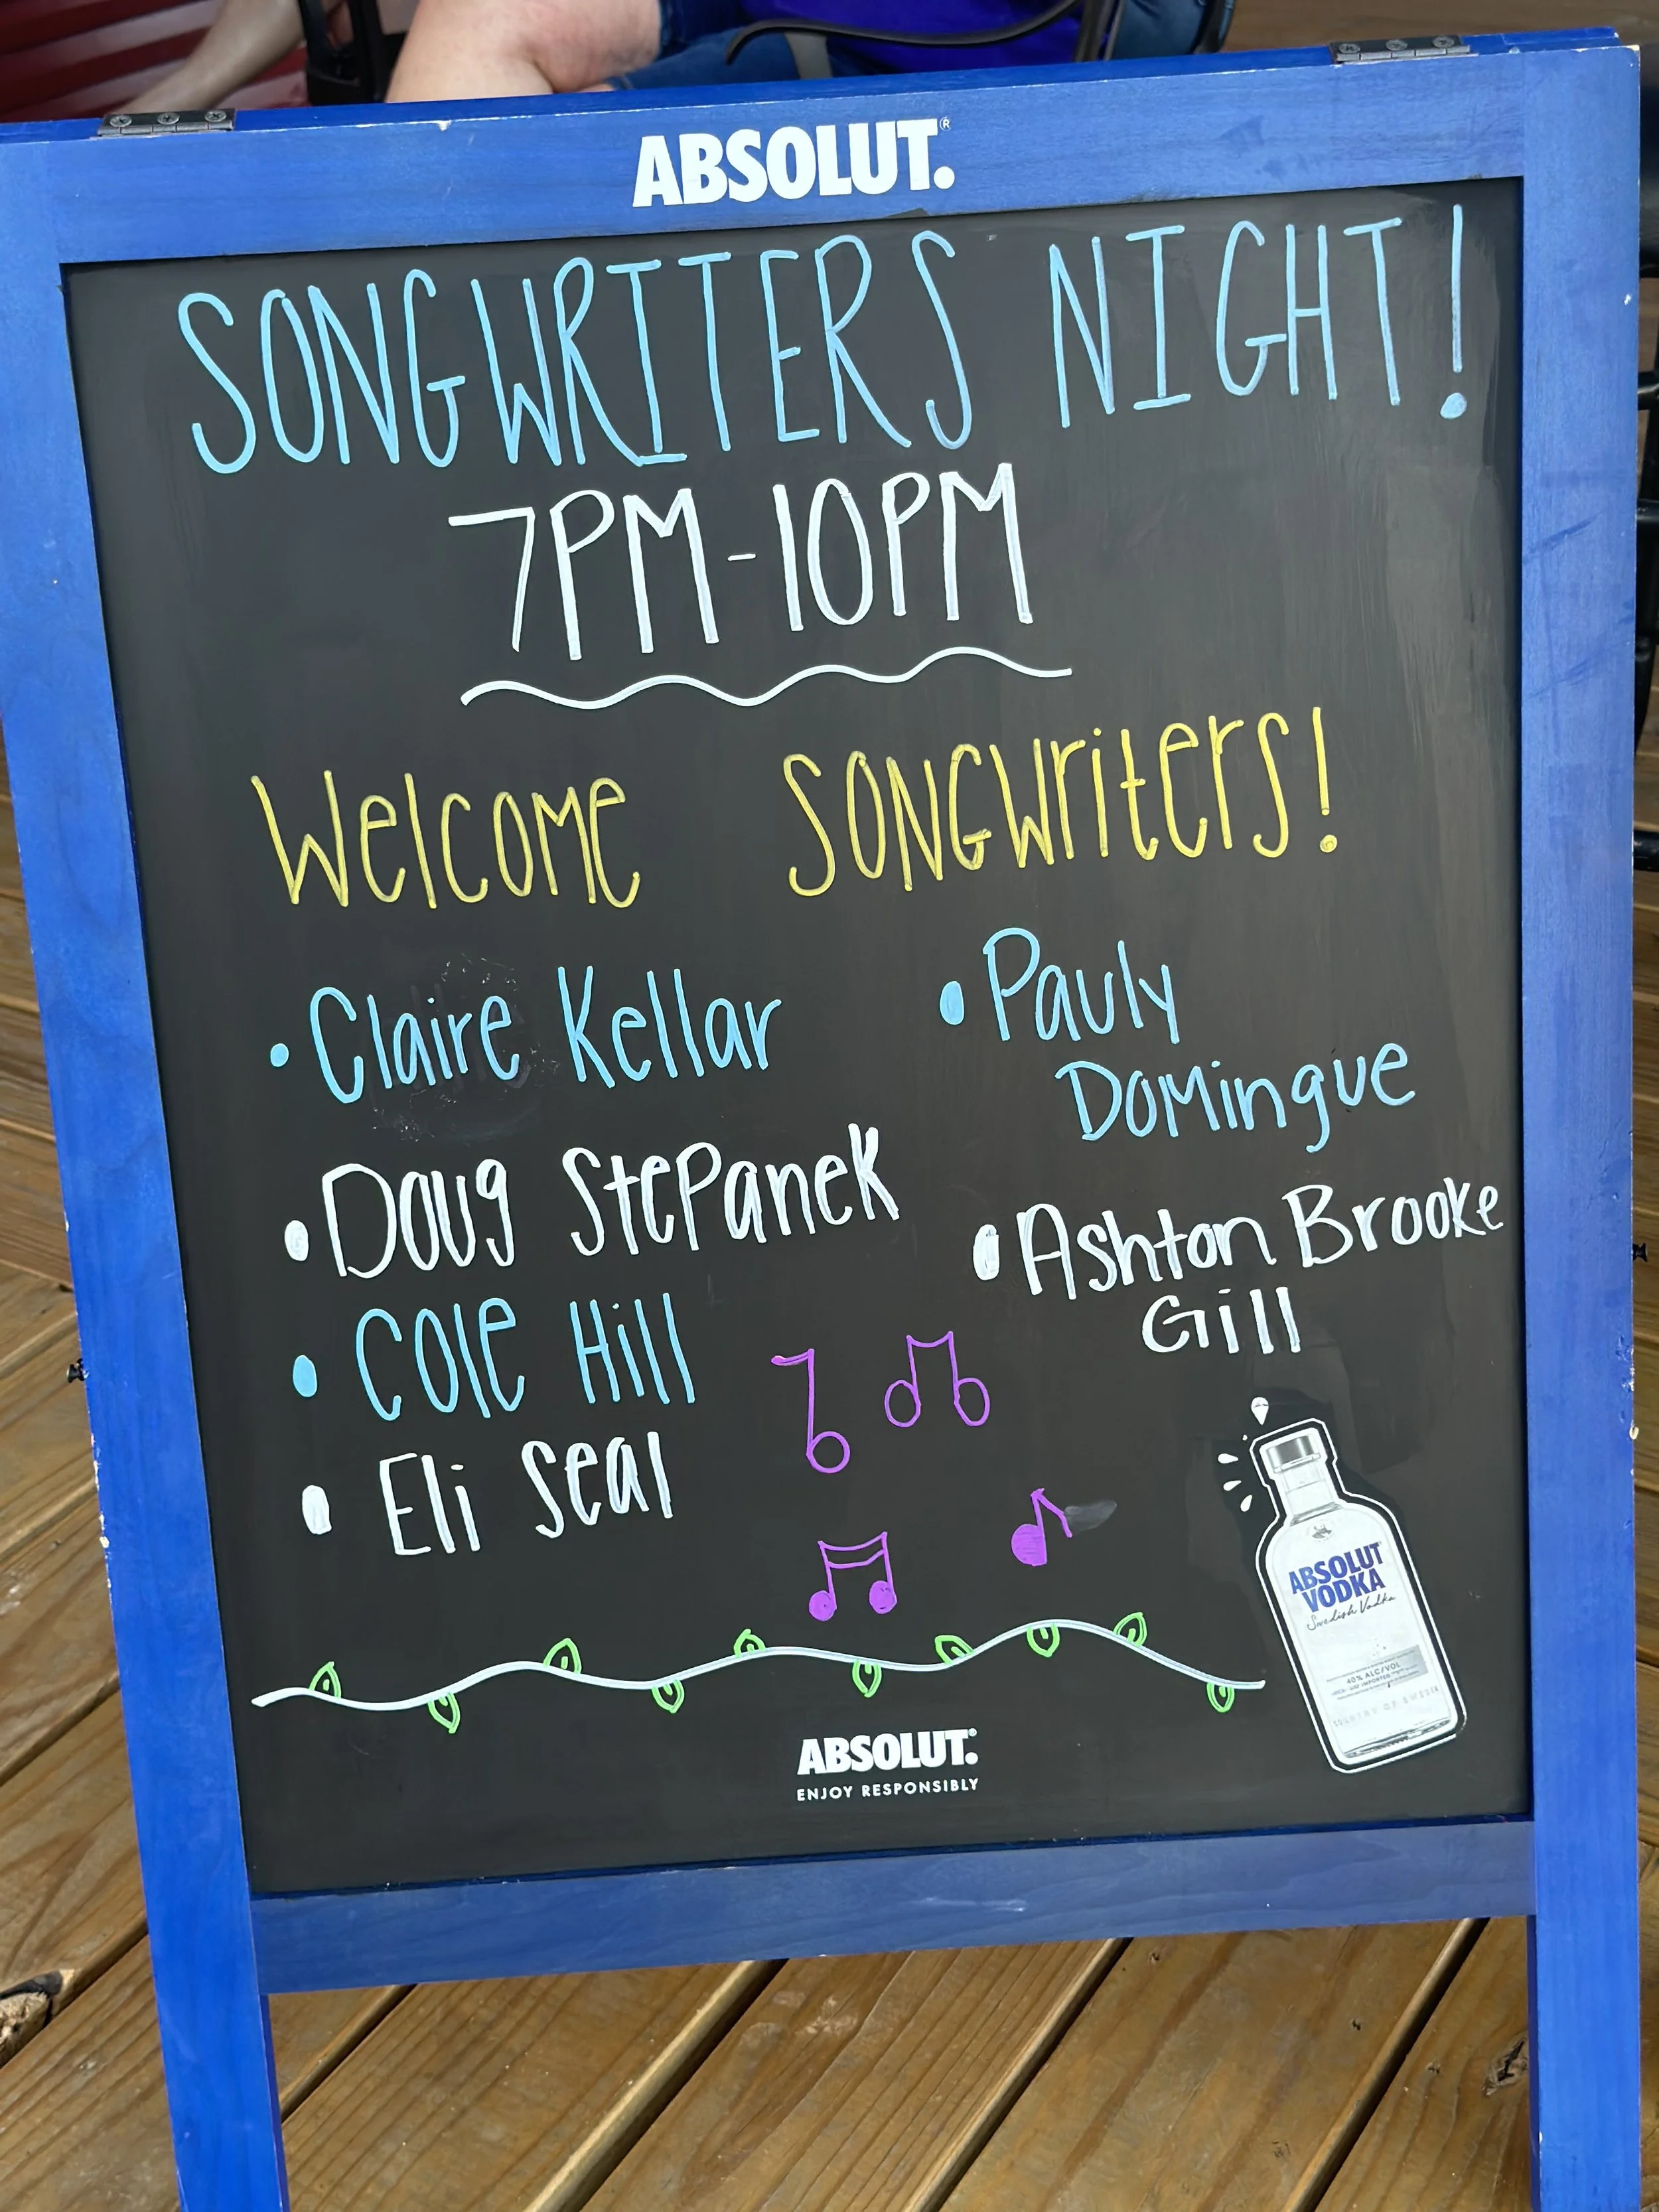 ABSOLUT.®
SONGWRITERS NIGHT!
7PM-10PM
Welcome SONGWriters!
• Claire Kellar
• Pauly
Domingue
• Doug Stepanek
• Ashton Brooke
Gill
• Cole Hill
• Eli Seal
ABSOLUT
VODKA
Swedish Vodka
40% ALC/VOL
COUNTRY OF SWEDEN
ABSOLUT.®
ENJOY RESPONSIBLY